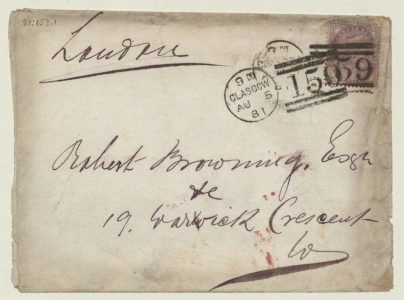 81:153.1
London
9 PM
GLASGOW
AU 5
81
159
Robert Browning, Esqr
&c
19. Warwick Crescent
W